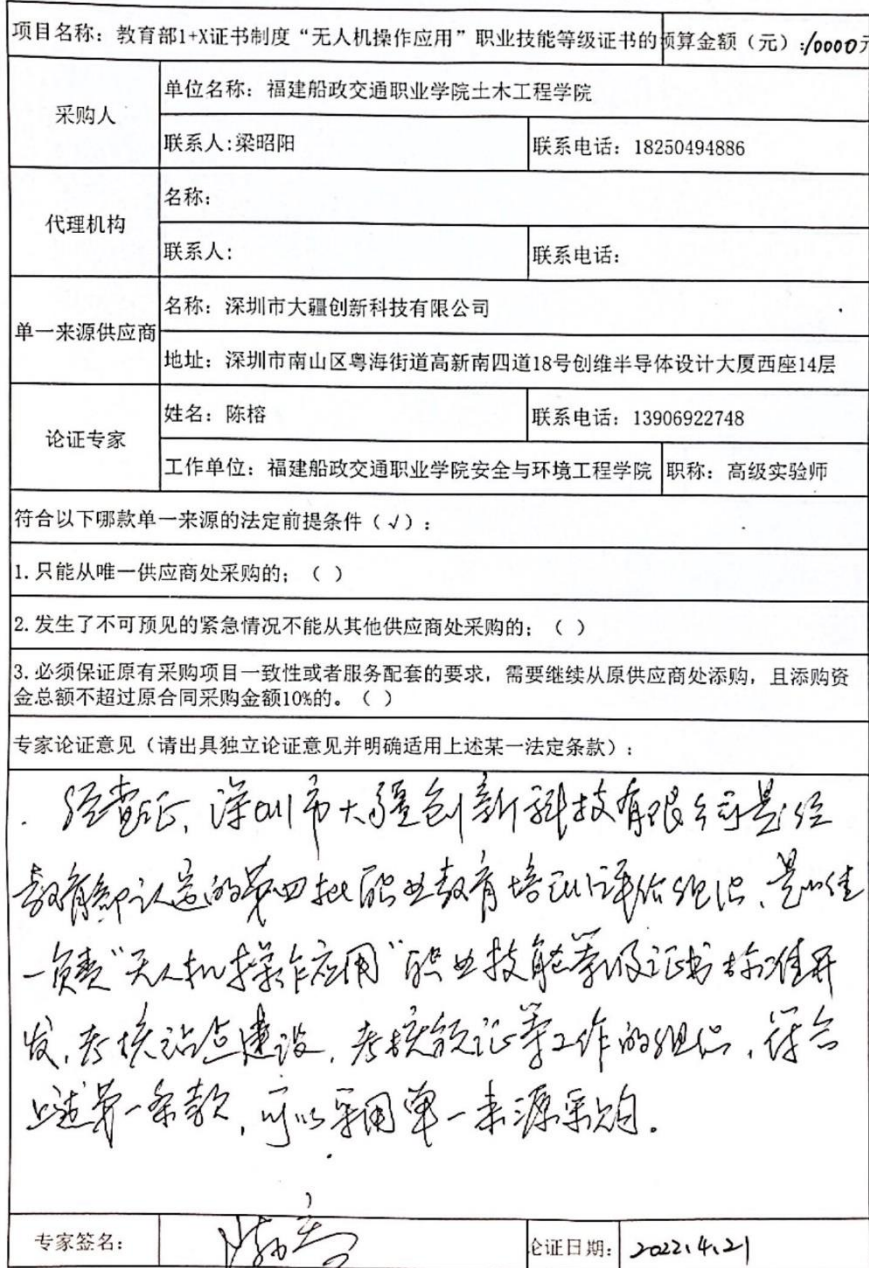 项目名称：教育部1+X证书制度“无人机操作应用”职业技能等级证书的
预算金额（元）:10000元
采购人
单位名称：福建船政交通职业学院土木工程学院
联系人:梁昭阳
联系电话：18250494886
代理机构
名称：
联系人：
联系电话：
单一来源供应商
名称：深圳市大疆创新科技有限公司
地址：深圳市南山区粤海街道高新南四道18号创维半导体设计大厦西座14层
论证专家
姓名：陈榕
联系电话：13906922748
工作单位：福建船政交通职业学院安全与环境工程学院
职称：高级实验师
符合以下哪款单一来源的法定前提条件（√）：
1.只能从唯一供应商处采购的；（ ）
2.发生了不可预见的紧急情况不能从其他供应商处采购的；（ ）
3.必须保证原有采购项目一致性或者服务配套的要求，需要继续从原供应商处添购，且添购资
金总额不超过原合同采购金额10%的。（ ）
专家论证意见（请出具独立论证意见并明确适用上述某一法定条款）：
经查证，深圳市大疆创新科技有限公司是经
教育部认定的第四批职业教育培训评价组织，是唯
一负责“无人机操作应用”职业技能等级证书标准开
发，考核站点建设，考核颁证等工作的组织，符合
上述第一条款，可以采用单一来源采购。
专家签名：
论证日期：2022.4.21